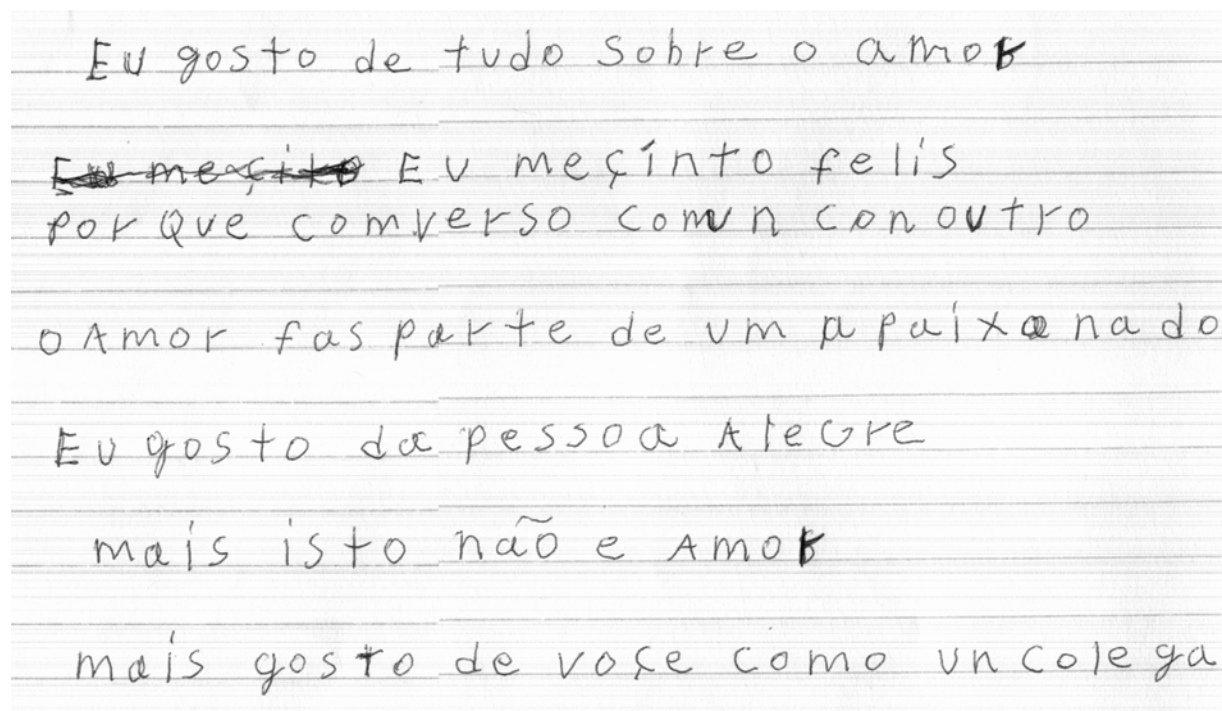 Eu gosto de tudo sobre o amor
Eu meçito Eu meçinto felis
por que comverso comun con outro
o Amor fas parte de um apaixonado
Eu gosto da pessoa Alegre
mais isto não e Amor
mais gosto de voçe como un colega